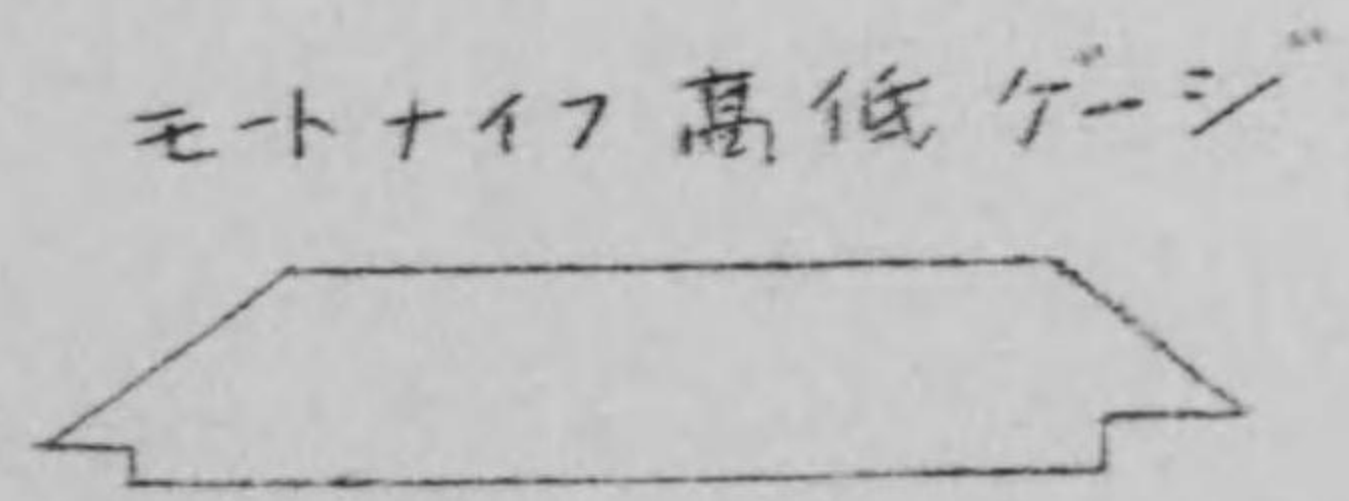 モートナイフ高低ゲージ